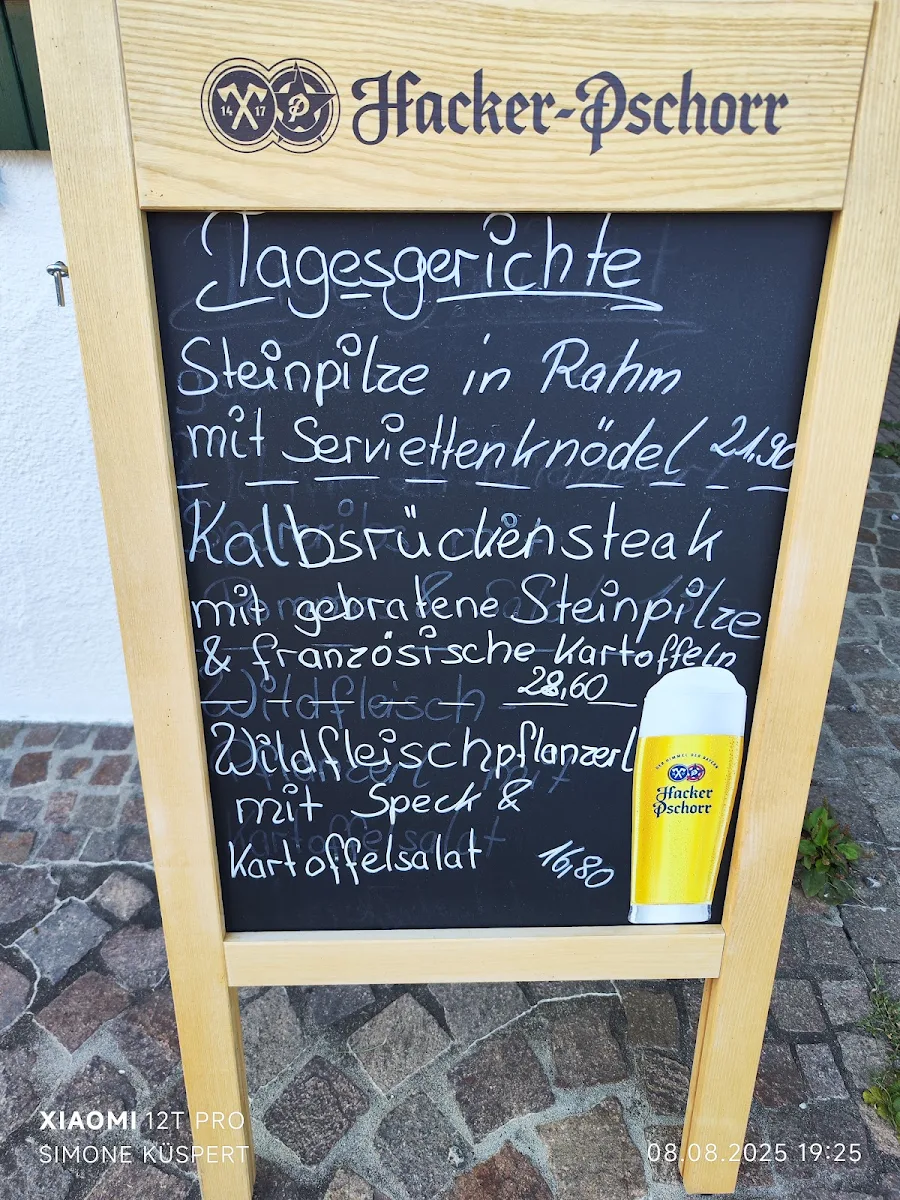 14 17 P Hacker-Pschorr
Tagesgerichte
Steinpilze in Rahm
mit Serviettenknödel 21,90
Kalbsrückensteak
mit gebratene Steinpilze
& französische Kartoffeln
28,60
Wildfleischpflanzerl
mit Speck &
Kartoffelsalat 16,80
DER HIMMEL DER BAYERN
Hacker
Pschorr
XIAOMI 12T PRO
SIMONE KÜSPERT
08.08.2025 19:25